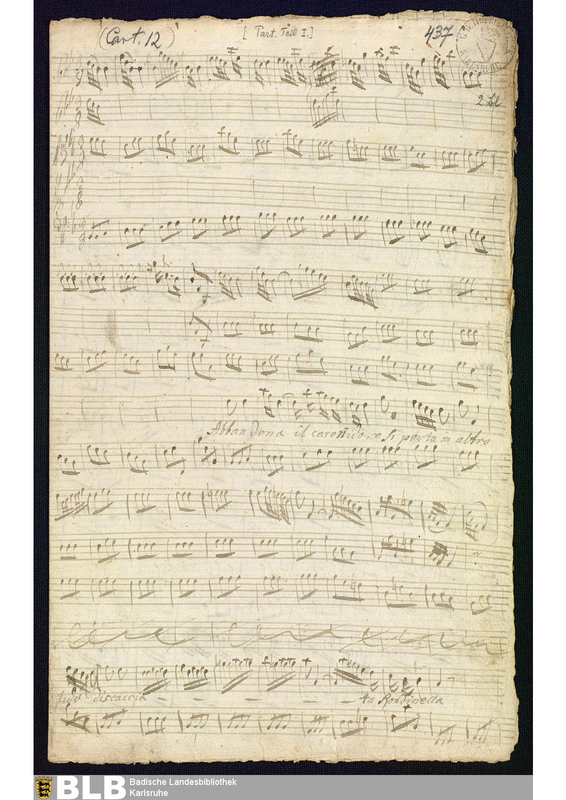 (Cart. 12)
[Part. Teil I.]
437
Abbanduna il caro nido, e si porta in altro
discaccia
la Rondinella
BLB Badische Landesbibliothek
Karlsruhe